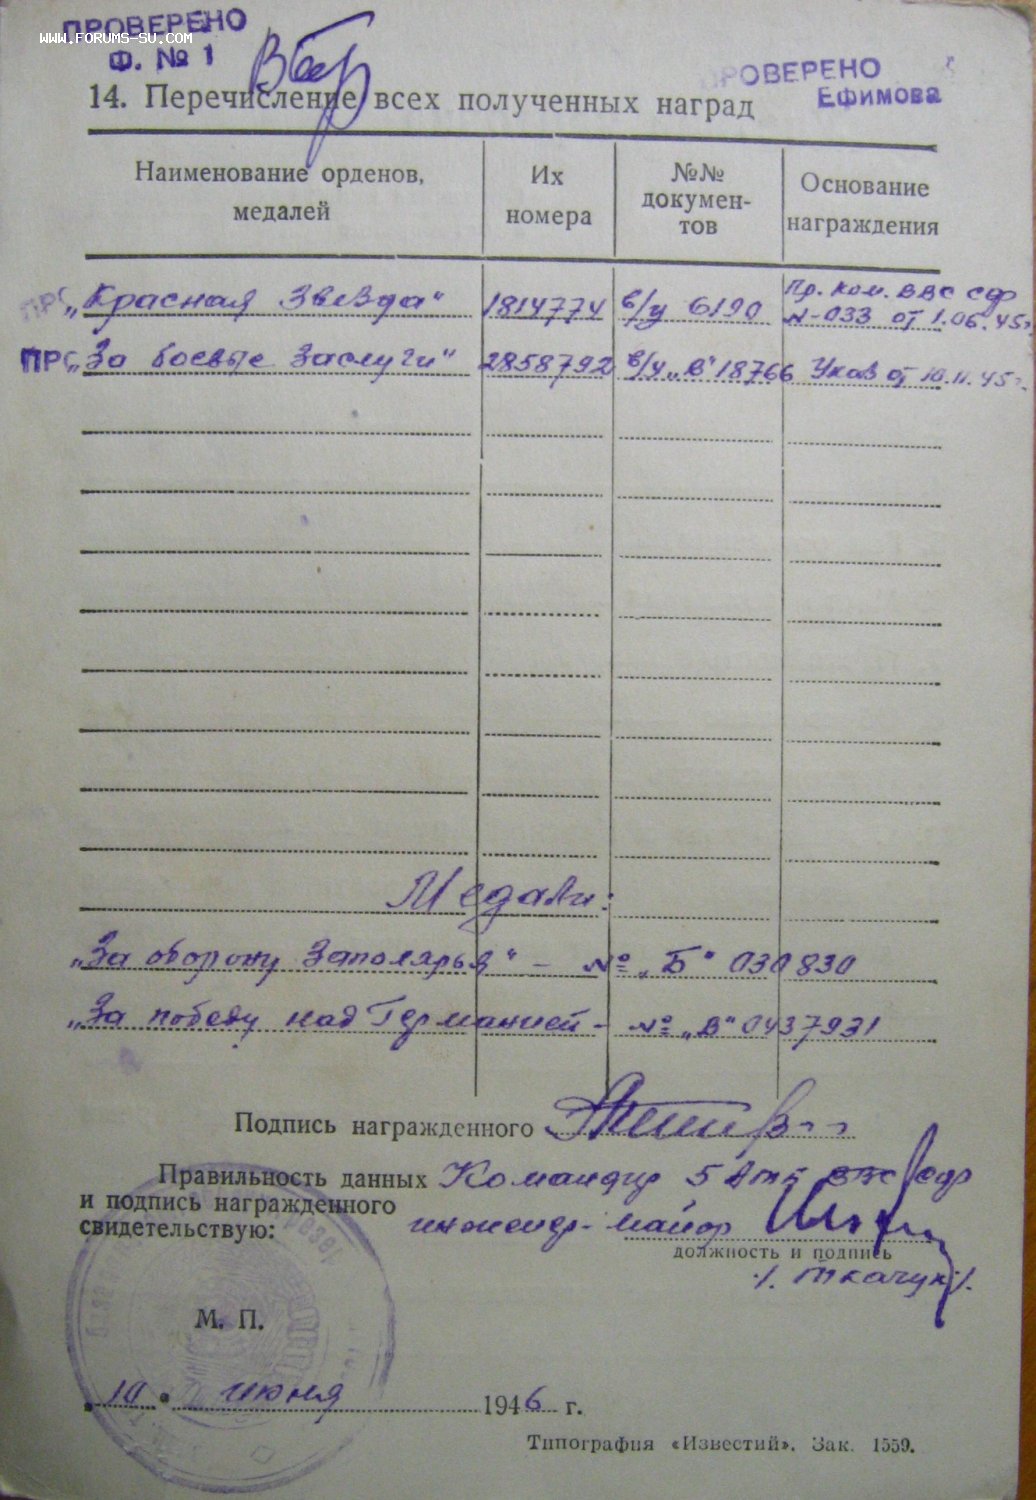 ПРОВЕРЕНО
www.forums-su.com
Ф. № 1
ПРОВЕРЕНО
Ефимова
14. Перечисление всех полученных наград
Наименование орденов, медалей
Их номера
№№ докумен-
тов
Основание награждения
„Красная Звезда" 1814774 в/у 6190 Пр. Ком. ВВС СФ
№-033 от 1.06.45г.
ПРО „За боевые заслуги" 2858792 в/у „В" 18766 Указ от 10.11.45г.
Медали:
„За оборону Заполярья" - № „Б" 030830
„За победу над Германией - № „В" 0437931
Подпись награжденного
Правильность данных Командир 5 ВВС СФ
и подпись награжденного
свидетельствую: инженер-майор
должность и подпись
/. Ткачук /.
М. П.
„10" июня 1946 г.
Типография «Известий». Зак. 1559.